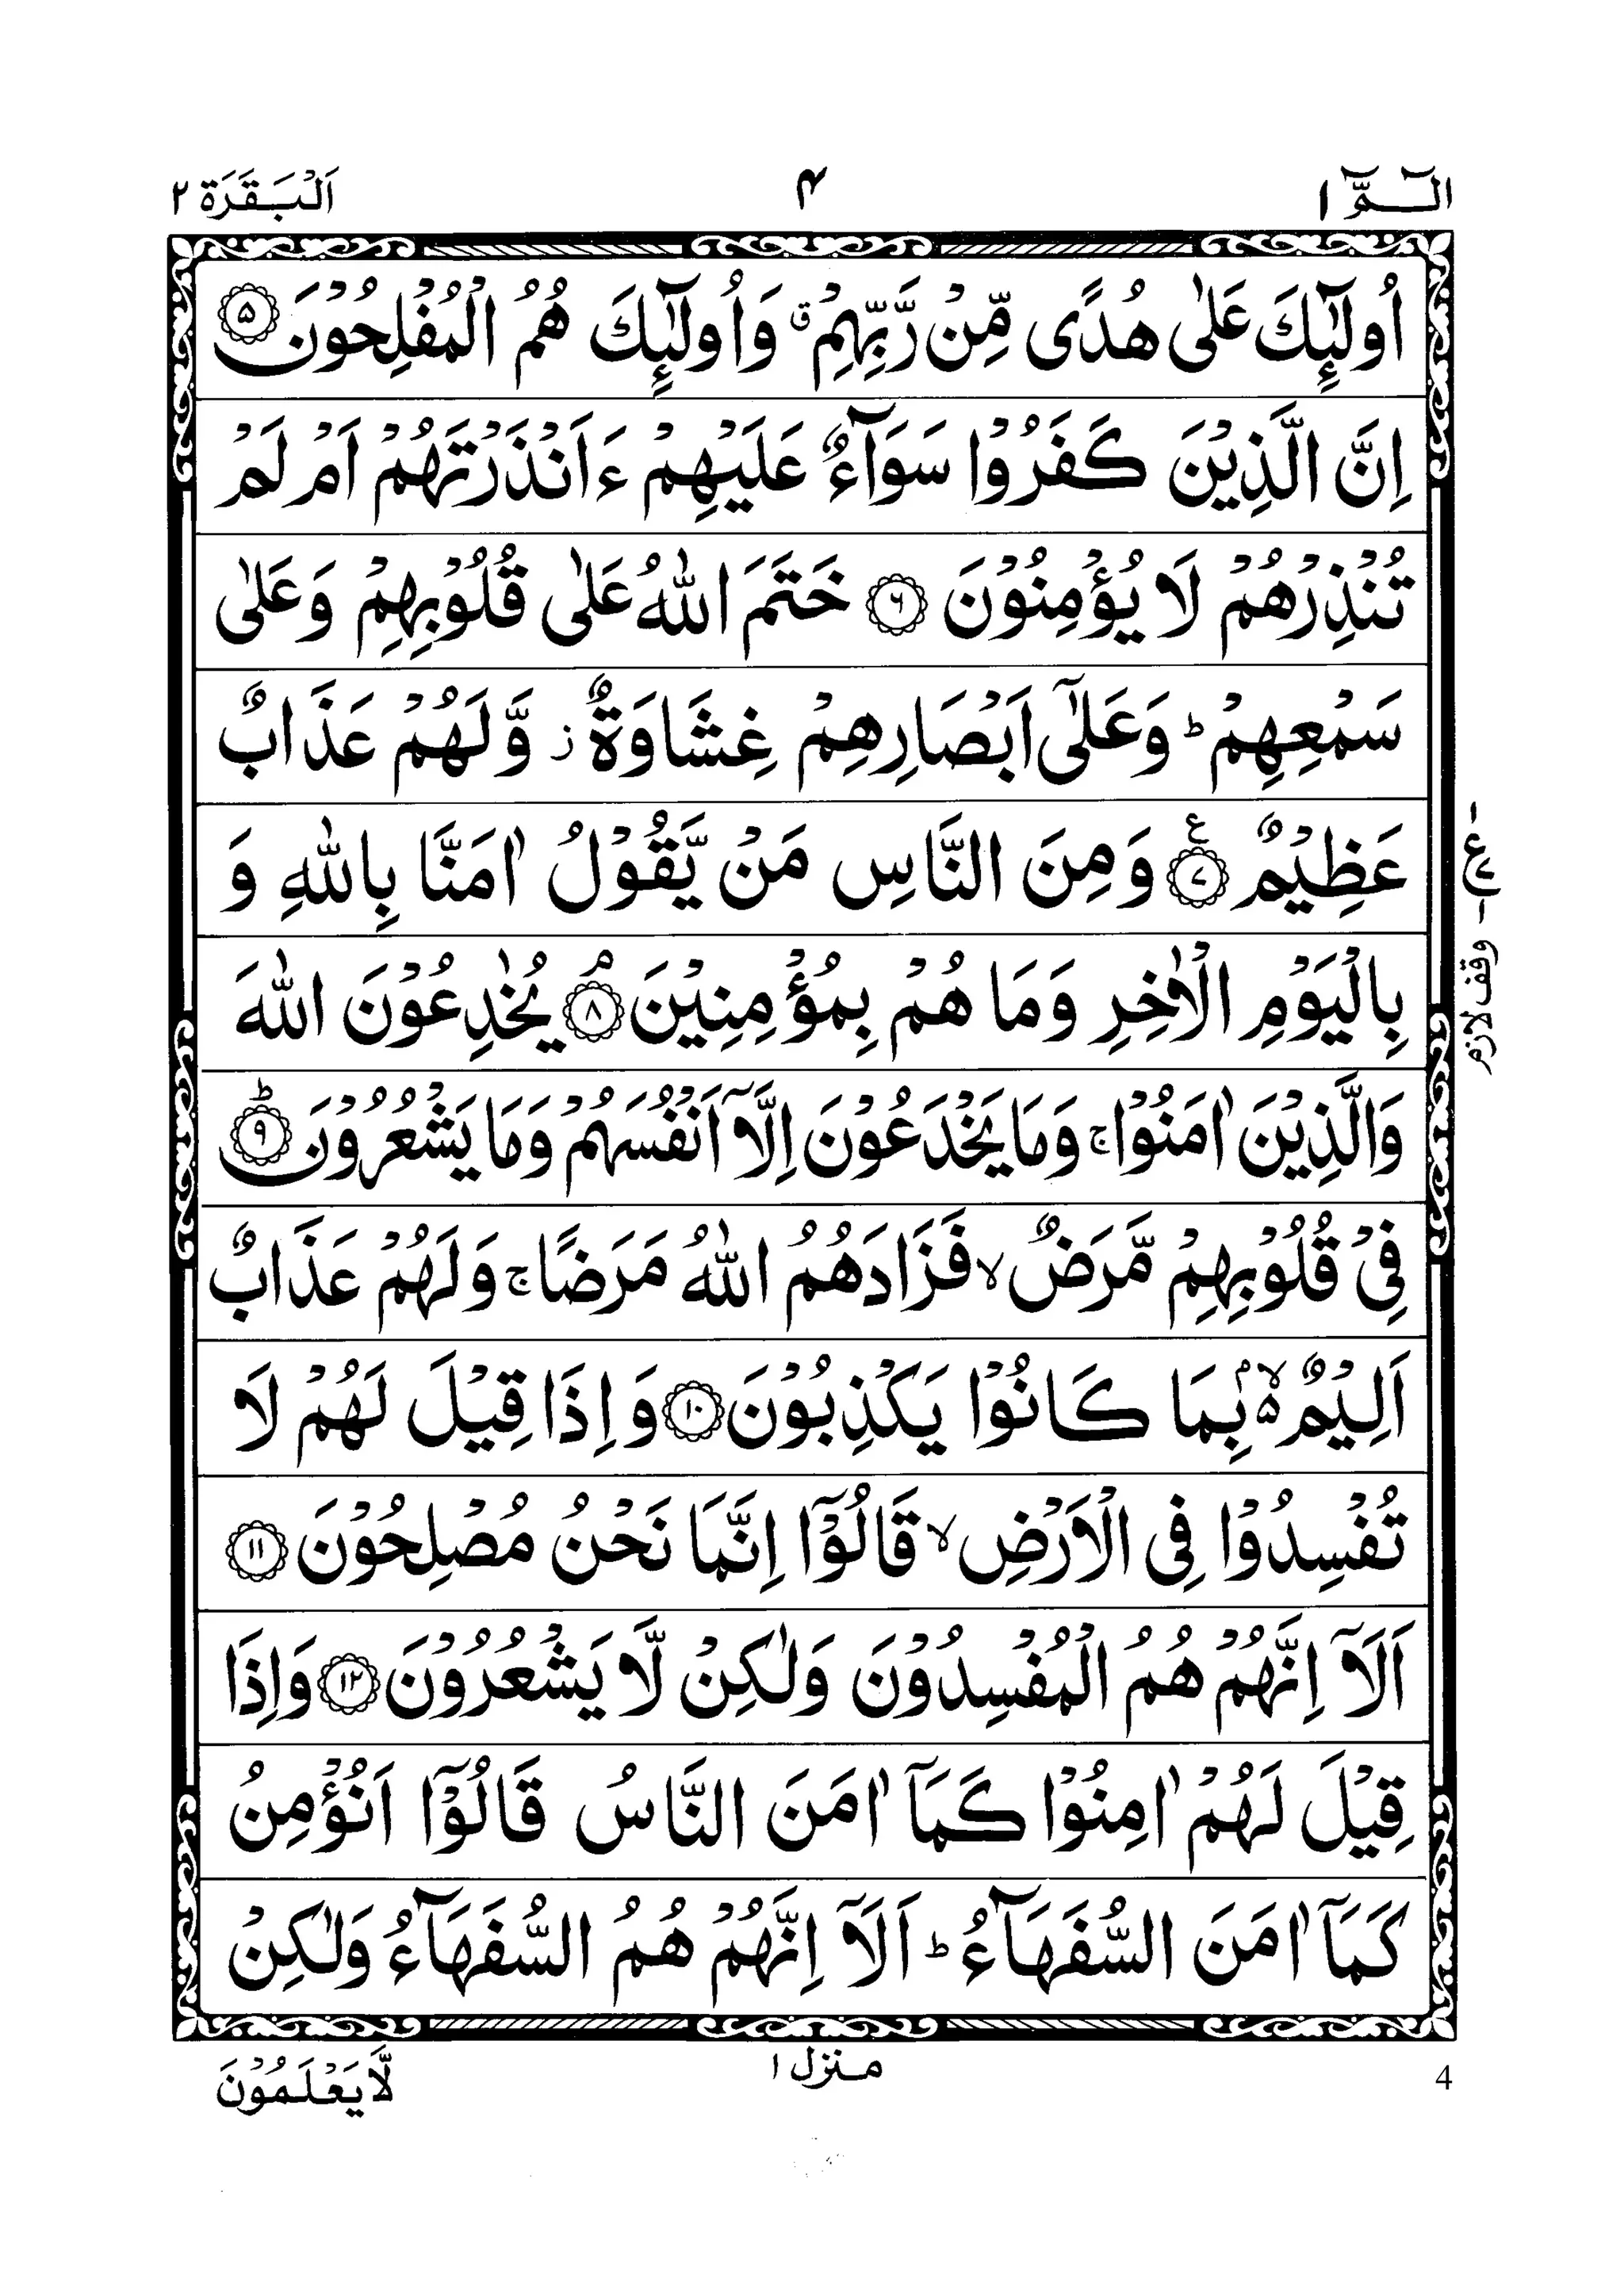 الٓـمّٓ ١
٤
اَلْبَقَرَة ٢
اُولٰٓئِكَ عَلٰى هُدًى مِّنْ رَّبِّهِمْ ۗ وَاُولٰٓئِكَ هُمُ الْمُفْلِحُوْنَ ۝٥
اِنَّ الَّذِيْنَ كَفَرُوْا سَوَآءٌ عَلَيْهِمْ ءَاَنْذَرْتَهُمْ اَمْ لَمْ
تُنْذِرْهُمْ لَا يُؤْمِنُوْنَ ۝٦ خَتَمَ اللّٰهُ عَلٰى قُلُوْبِهِمْ وَعَلٰى
سَمْعِهِمْ ؕ وَعَلٰٓى اَبْصَارِهِمْ غِشَاوَةٌ ز وَّلَهُمْ عَذَابٌ
عَظِيْمٌ ۝٧ ع وَمِنَ النَّاسِ مَنْ يَّقُوْلُ اٰمَنَّا بِاللّٰهِ وَ
بِالْيَوْمِ الْاٰخِرِ وَمَا هُمْ بِمُؤْمِنِيْنَ ۝٨ۘ يُخٰدِعُوْنَ اللّٰهَ
وَالَّذِيْنَ اٰمَنُوْا ۚ وَمَا يَخْدَعُوْنَ اِلَّآ اَنْفُسَهُمْ وَمَا يَشْعُرُوْنَ ۝٩ؕ
فِيْ قُلُوْبِهِمْ مَّرَضٌ ۙ فَزَادَهُمُ اللّٰهُ مَرَضًا ۚ وَلَهُمْ عَذَابٌ
اَلِيْمٌ ۵ۙ بِمَا كَانُوْا يَكْذِبُوْنَ ۝١٠ وَاِذَا قِيْلَ لَهُمْ لَا
تُفْسِدُوْا فِى الْاَرْضِ ۙ قَالُوْٓا اِنَّمَا نَحْنُ مُصْلِحُوْنَ ۝١١
اَلَآ اِنَّهُمْ هُمُ الْمُفْسِدُوْنَ وَلٰكِنْ لَّا يَشْعُرُوْنَ ۝١٢ وَاِذَا
قِيْلَ لَهُمْ اٰمِنُوْا كَمَآ اٰمَنَ النَّاسُ قَالُوْٓا اَنُؤْمِنُ
كَمَآ اٰمَنَ السُّفَهَآءُ ؕ اَلَآ اِنَّهُمْ هُمُ السُّفَهَآءُ وَلٰكِنْ
ع
وقف لازم
4
منزل ١
لَّا يَعْلَمُوْنَ